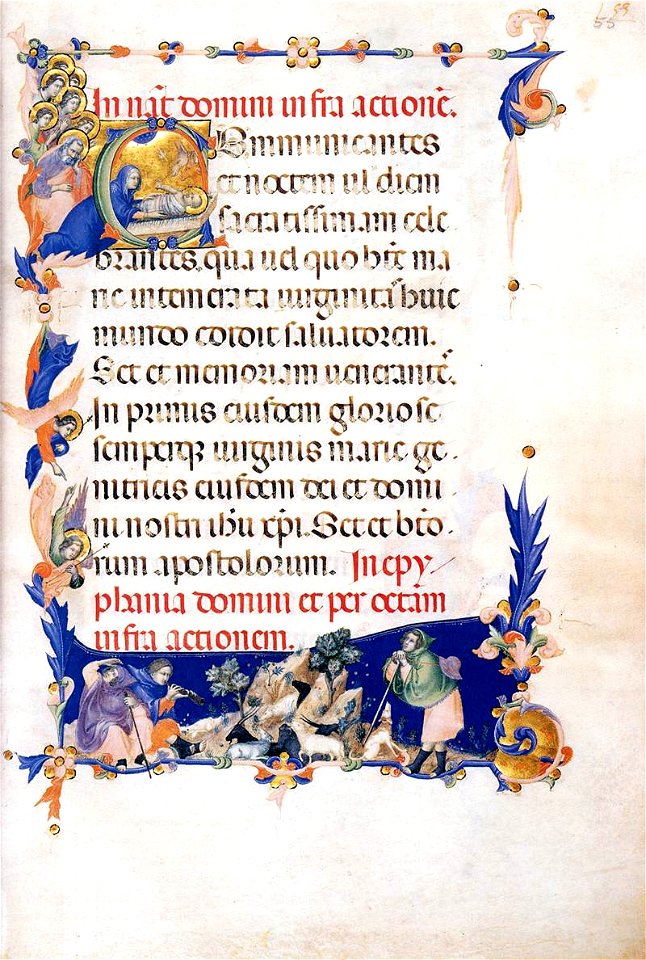 55
In nat̄ domini infra actionē.
Communicantes
et noctem ul diem
sacratissimam cele
brantes. qua uel quo bt̄e ma
rie intemerata uirginitaˢ huic
mundo edidit saluatorem.
Set et memoriam uenerantē.
In primis eiusdem gloriose
semperqꝫ uirginis marie ge
nitricis eiusdem dei et domi
ni nostri ihu̅ xp̅i. Set et bt̄o
rum apostolorum. In epy
phania domini et per octām
infra actionem.